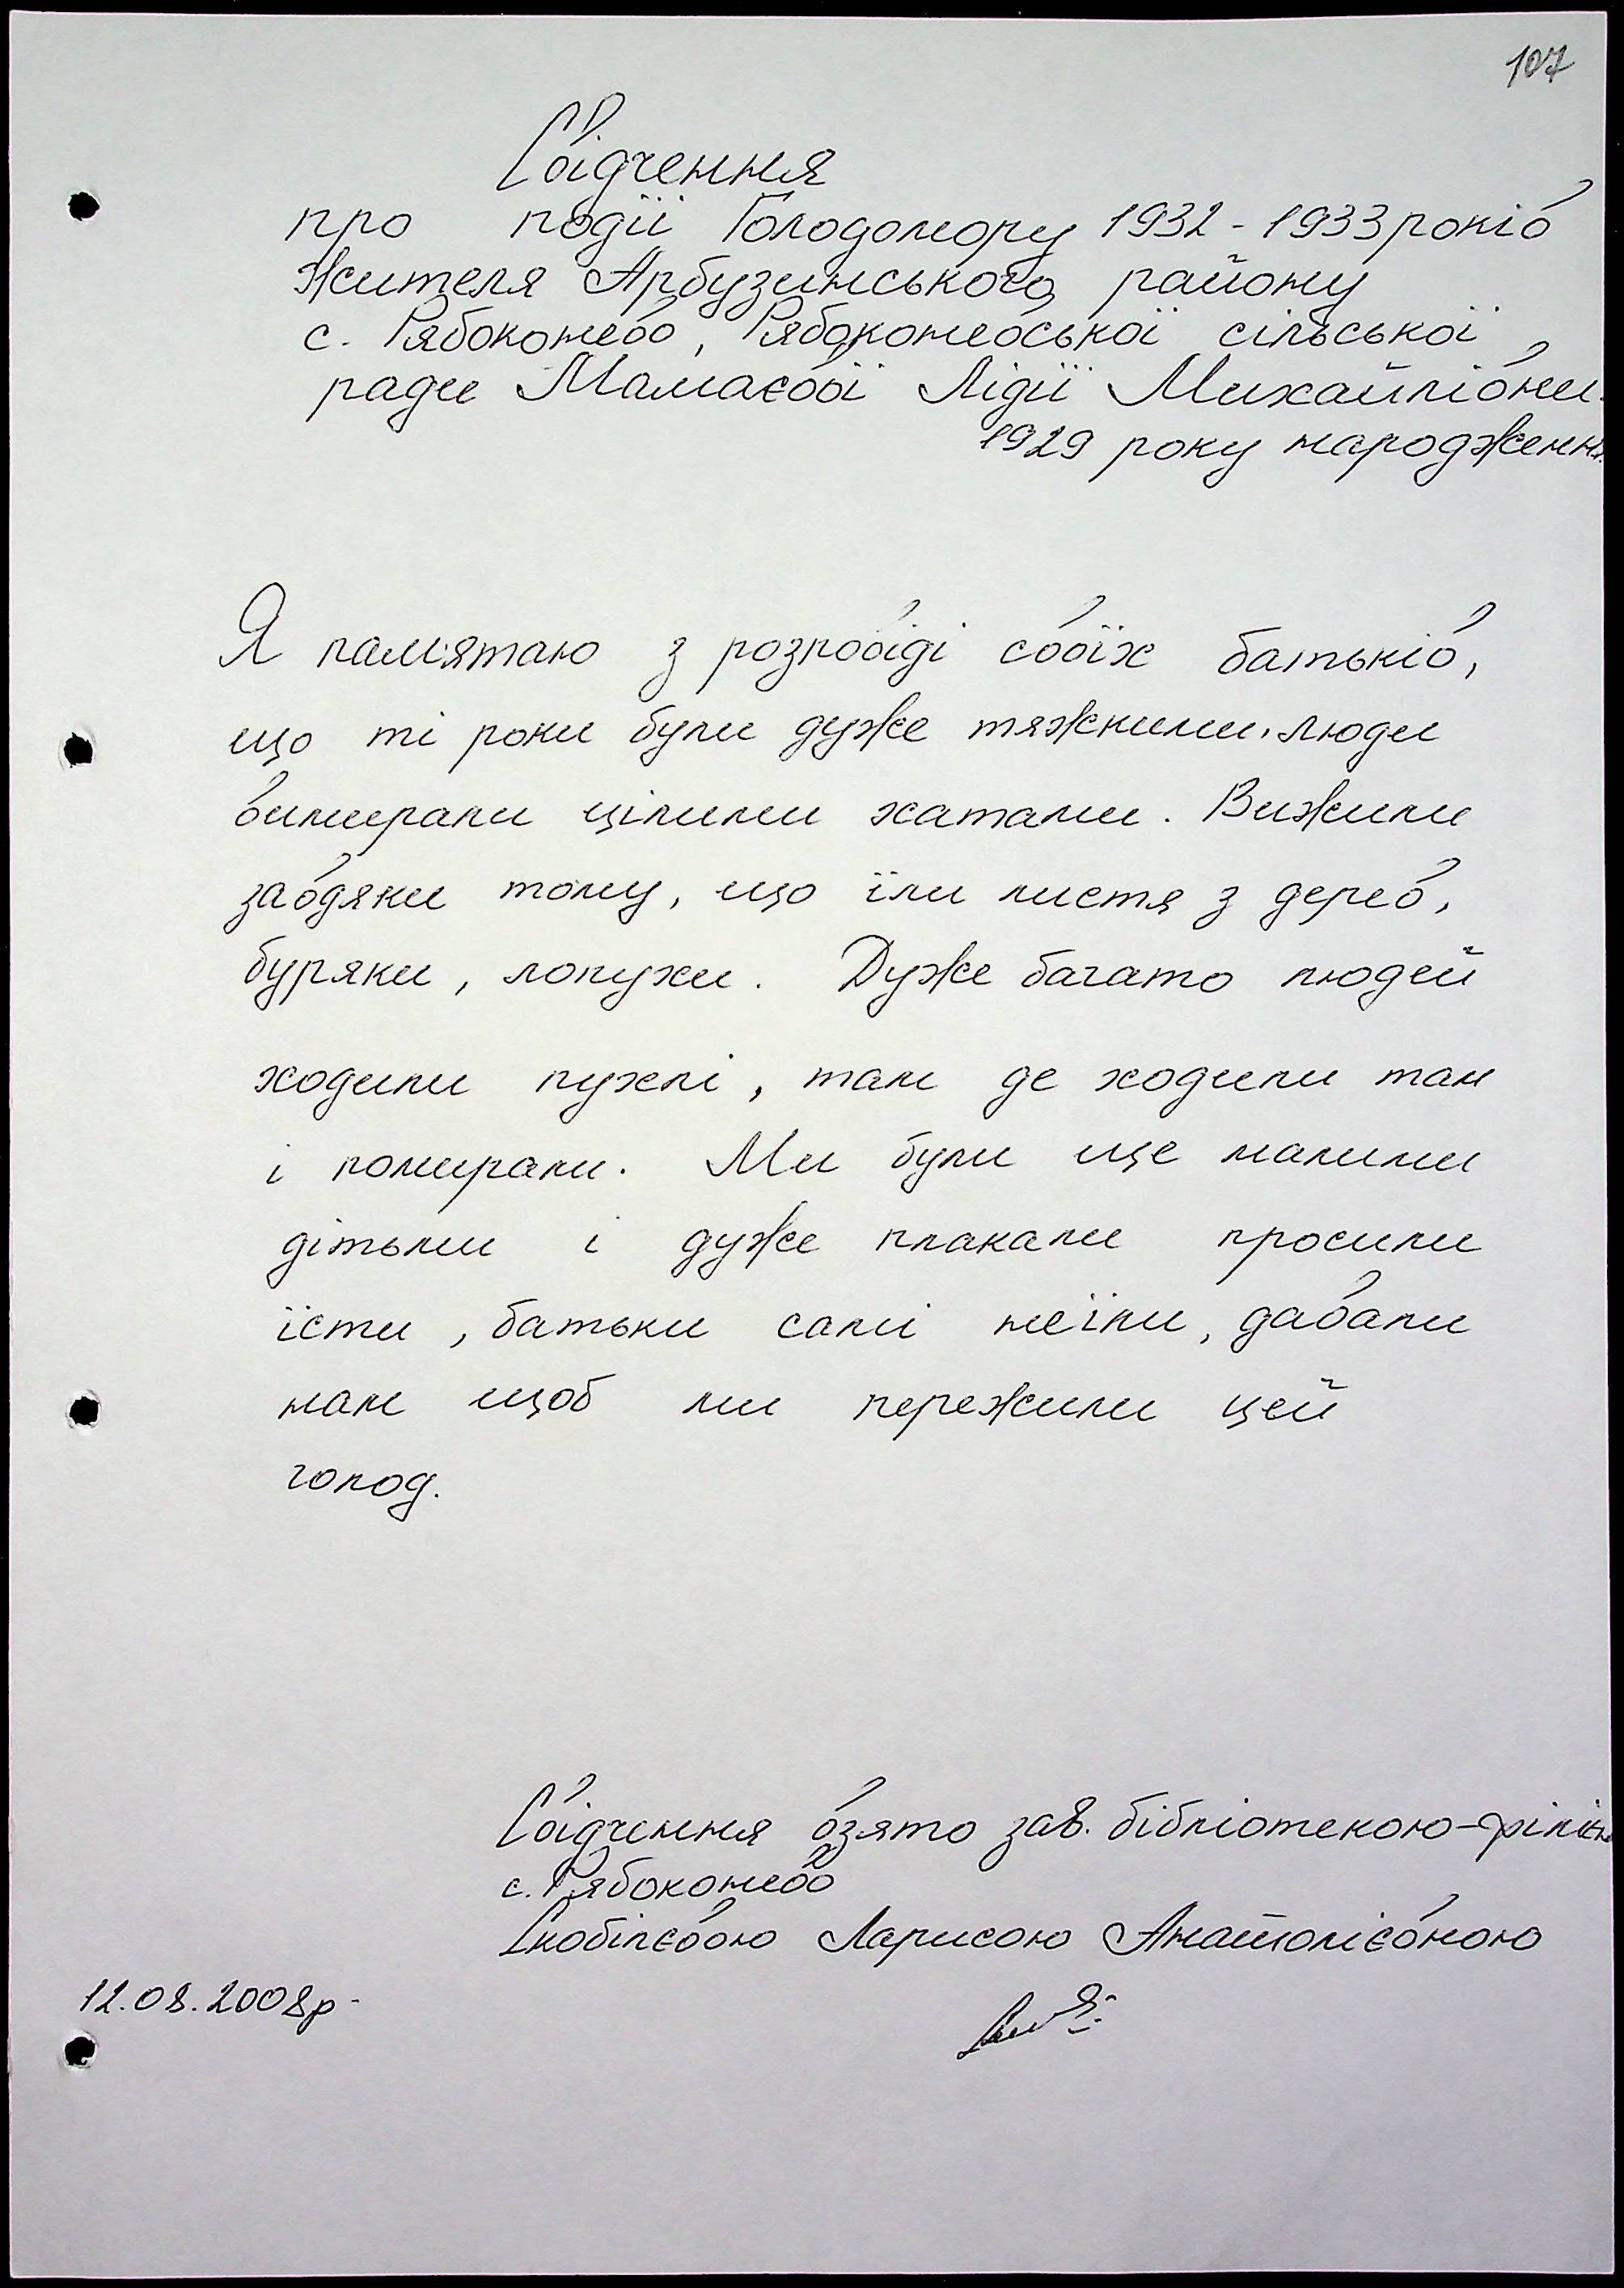 107
Свідчення
про події Голодомору 1932-1933 років
Жителя Арбузинського району
с. Рябоконево, Рябоконевської сільської
ради Мамаєвої Лідії Михайлівни.
1929 року народження
Я пам'ятаю з розповіді своїх батьків,
що ті роки були дуже тяжкими, люди
вимирали цілими хатами. Вижили
завдяки тому, що їли листя з дерев,
буряки, лопухи. Дуже багато людей
ходили пухлі, там де ходили там
і помирали. Ми були ще малими
дітьми і дуже плакали просили
їсти, батьки самі неїли, давали
нам щоб ми пережили цей
голод.
Свідчення взято зав. бібліотекою-філією
с. Рябоконево
Скобілєвою Ларисою Анатолієвною
12.08.2008р.